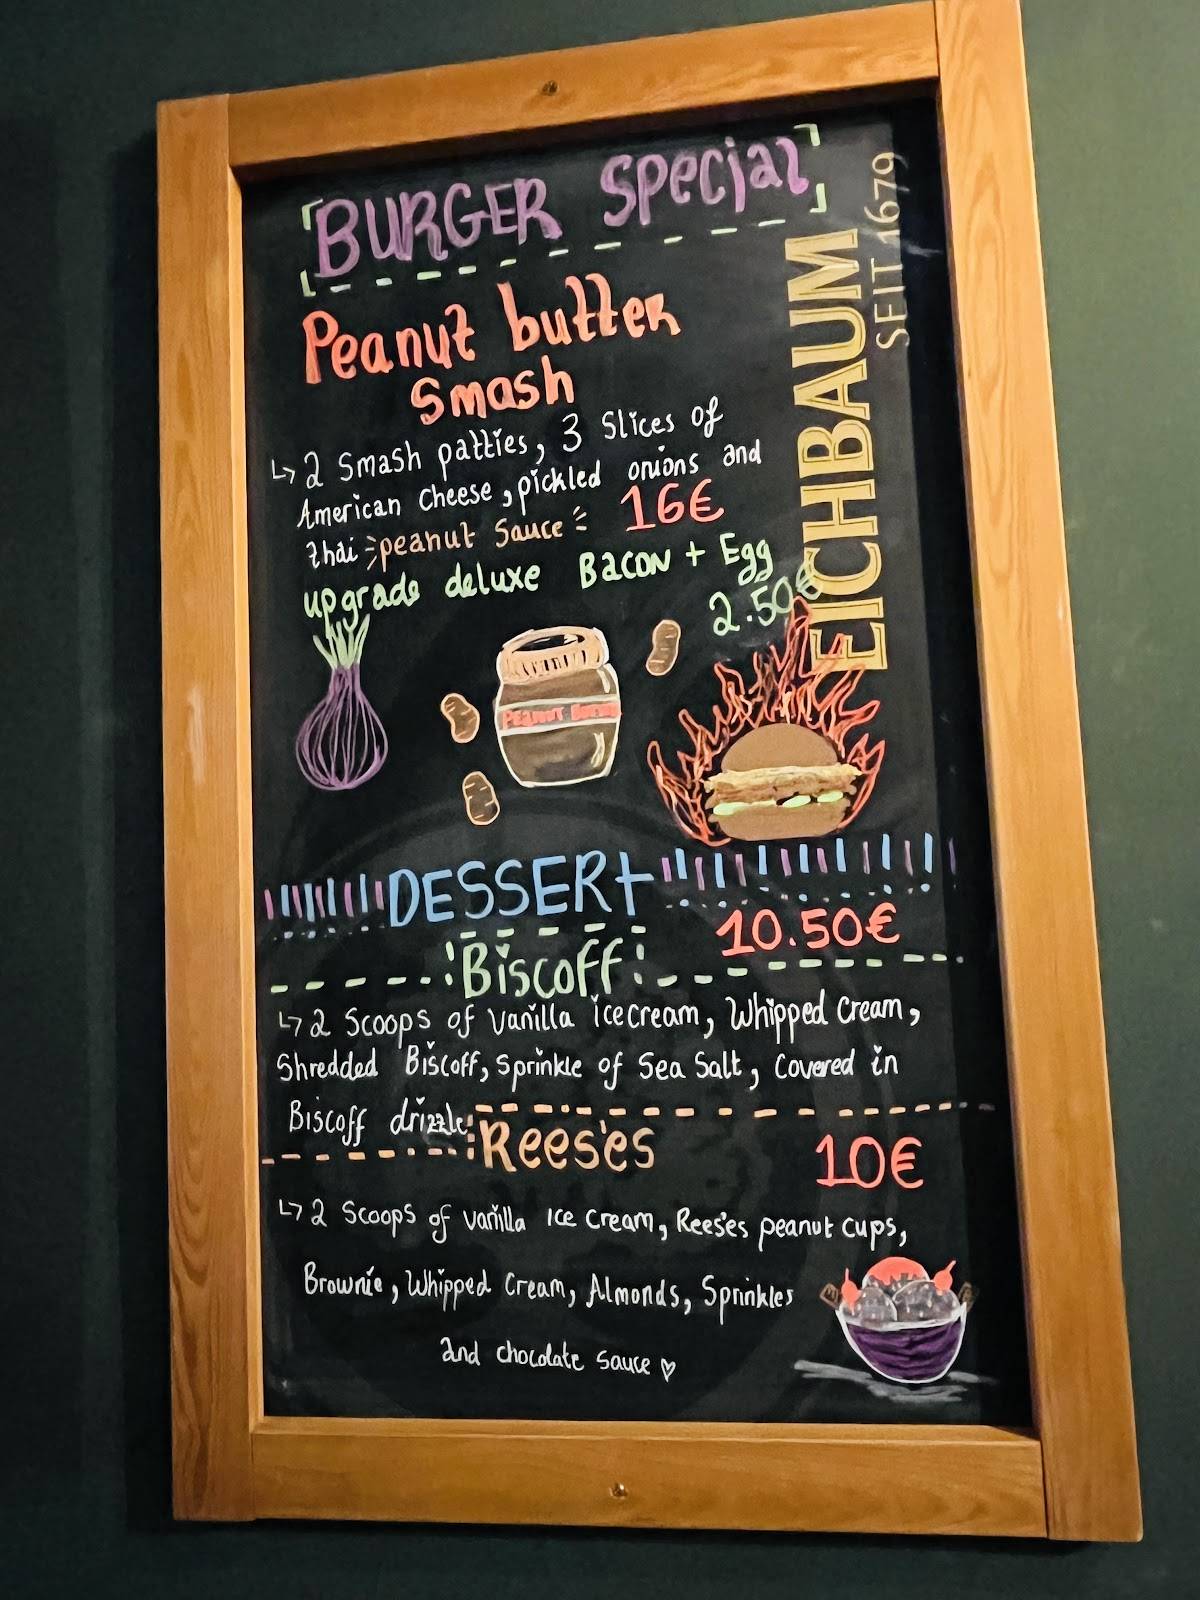 BURGER Special
Peanut butter
Smash
↳ 2 Smash patties, 3 Slices of
American Cheese, pickled onions and
thai peanut Sauce 16€
upgrade deluxe Bacon + Egg
2.50€
EICHBAUM
SEIT 1679
PEANUT
DESSERt
10.50€
Biscoff
↳ 2 Scoops of Vanilla icecream, Whipped Cream,
Shredded Biscoff, Sprinkle of Sea Salt, Covered in
Biscoff drizzle
Reese's
10€
↳ 2 Scoops of vanilla Ice Cream, Reese's peanut cups,
Brownie, Whipped Cream, Almonds, Sprinkles
and chocolate sauce ♡